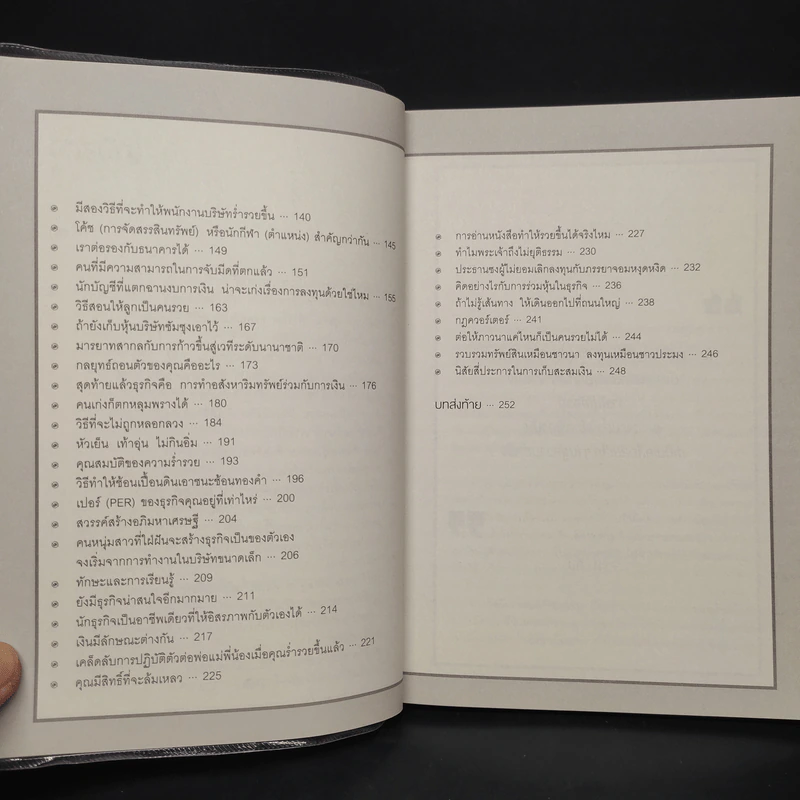 มีสองวิธีที่จะทำให้พนักงานบริษัทร่ำรวยขึ้น ··· 140
โค้ช (การจัดสรรสินทรัพย์) หรือนักกีฬา (ตำแหน่ง) สำคัญกว่ากัน ··· 145
เราต่อรองกับธนาคารได้ ··· 149
คนที่มีความสามารถในการจับมีดที่ตกแล้ว ··· 151
นักบัญชีที่แตกฉานงบการเงิน น่าจะเก่งเรื่องการลงทุนด้วยใช่ไหม ··· 155
วิธีสอนให้ลูกเป็นคนรวย ··· 163
ถ้ายังเก็บหุ้นบริษัทซัมซุงเอาไว้ ··· 167
มารยาทสากลกับการก้าวขึ้นสู่เวทีระดับนานาชาติ ··· 170
กลยุทธ์ถอนตัวของคุณคืออะไร ··· 173
สุดท้ายแล้วธุรกิจคือ การทำอสังหาริมทรัพย์ร่วมกับการเงิน ··· 176
คนเก่งก็ตกหลุมพรางได้ ··· 180
วิธีที่จะไม่ถูกหลอกลวง ··· 184
หัวเย็น เท้าอุ่น ไม่กินอิ่ม ··· 191
คุณสมบัติของความร่ำรวย ··· 193
วิธีทำให้ช้อนเปื้อนดินเอาชนะช้อนทองคำ ··· 196
เปอร์ (PER) ของธุรกิจคุณอยู่ที่เท่าไหร่ ··· 200
สวรรค์สร้างอภิมหาเศรษฐี ··· 204
คนหนุ่มสาวที่ใฝ่ฝันจะสร้างธุรกิจเป็นของตัวเอง
จงเริ่มจากการทำงานในบริษัทขนาดเล็ก ··· 206
ทักษะและการเรียนรู้ ··· 209
ยังมีธุรกิจน่าสนใจอีกมากมาย ··· 211
นักธุรกิจเป็นอาชีพเดียวที่ให้อิสรภาพกับตัวเองได้ ··· 214
เงินมีลักษณะต่างกัน ··· 217
เคล็ดลับการปฏิบัติตัวต่อพ่อแม่พี่น้องเมื่อคุณร่ำรวยขึ้นแล้ว ··· 221
คุณมีสิทธิ์ที่จะล้มเหลว ··· 225
การอ่านหนังสือทำให้รวยขึ้นได้จริงไหม ··· 227
ทำไมพระเจ้าถึงไม่ยุติธรรม ··· 230
ประธานชงผู้ไม่ยอมเลิกลงทุนกับภรรยาจอมหงุดหงิด ··· 232
คิดอย่างไรกับการร่วมหุ้นในธุรกิจ ··· 236
ถ้าไม่รู้เส้นทาง ให้เดินออกไปที่ถนนใหญ่ ··· 238
กฎควอร์เตอร์ ··· 241
ต่อให้ภาวนาแค่ไหนก็เป็นคนรวยไม่ได้ ··· 244
รวบรวมทรัพย์สินเหมือนชาวนา ลงทุนเหมือนชาวประมง ··· 246
นิสัยสี่ประการในการเก็บสะสมเงิน ··· 248
บทส่งท้าย ··· 252